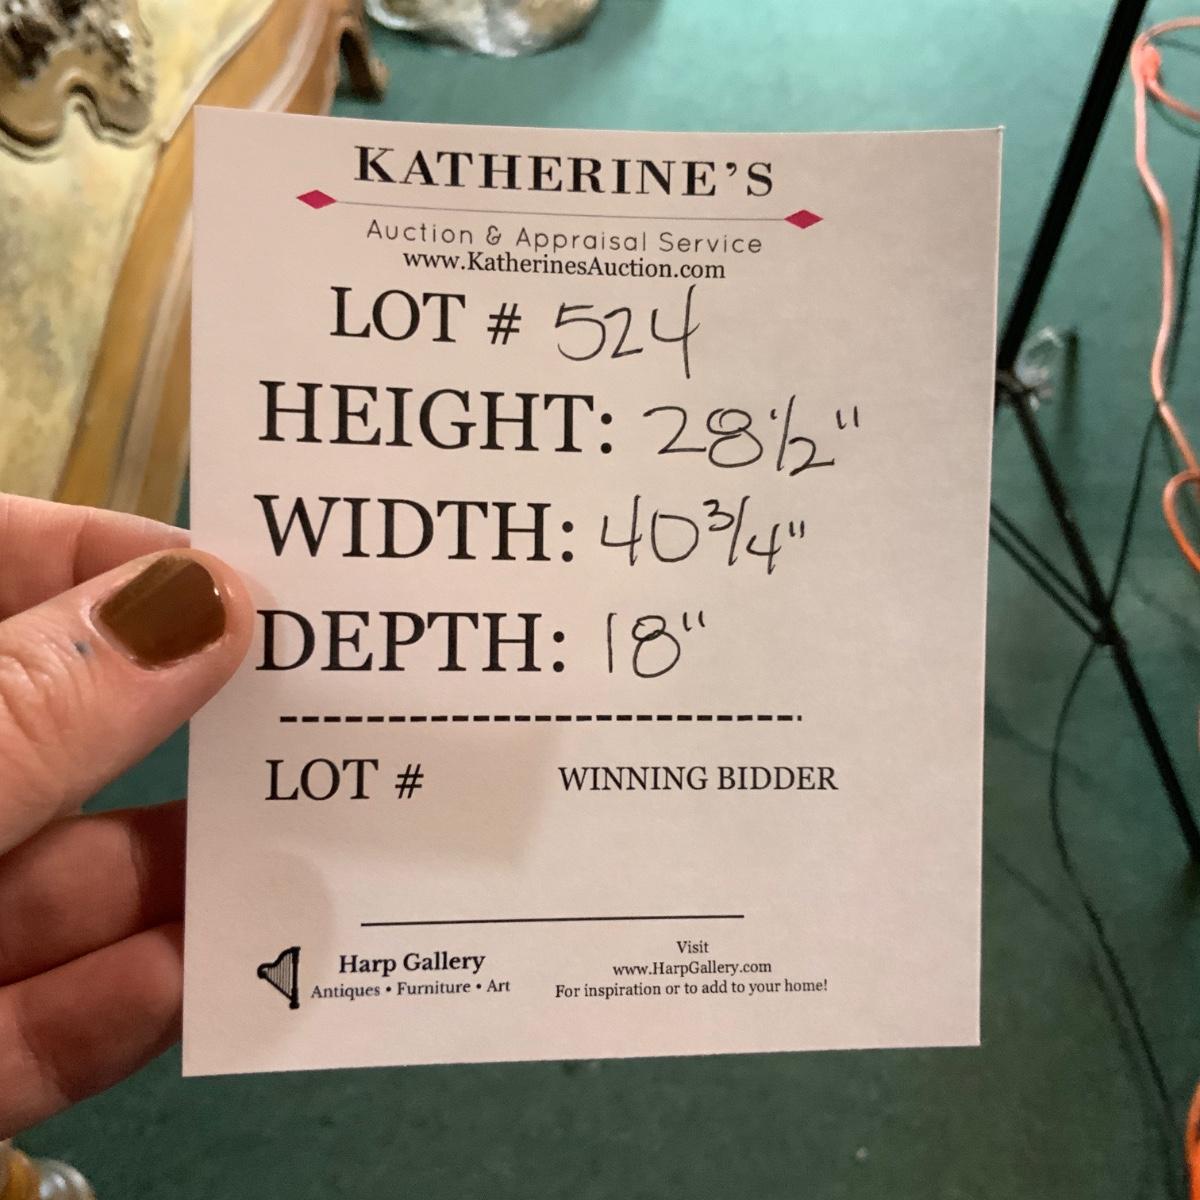 KATHERINE'S
Auction & Appraisal Service
www.KatherinesAuction.com
LOT # 524
HEIGHT: 28 1/2"
WIDTH: 40 3/4"
DEPTH: 18"
LOT # WINNING BIDDER
Harp Gallery
Antiques • Furniture • Art
Visit
www.HarpGallery.com
For inspiration or to add to your home!